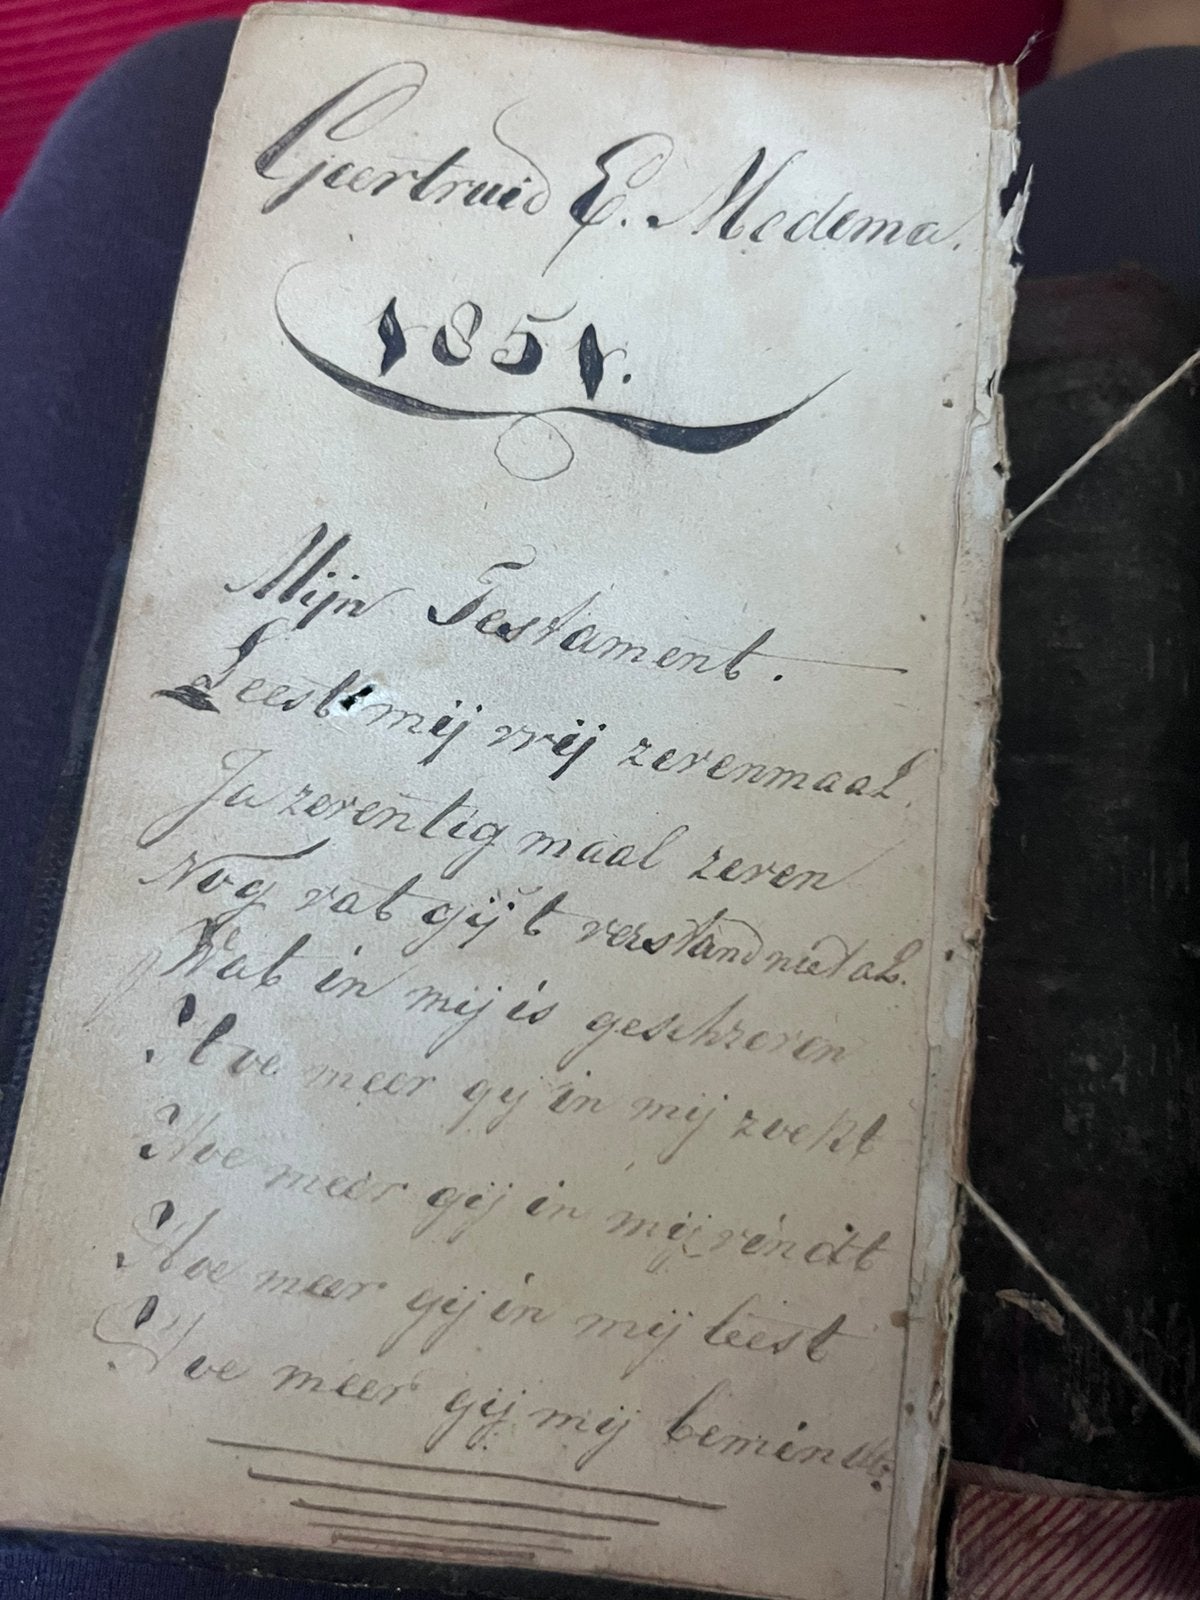 Geertruid E. Medema.
1851.
Mijn Testament.
Leest mij vrij zevenmaal.
Ja zeventig maal zeven
Nog vat gij 't verstand niet al.
Wat in mij is geschreven
Hoe meer gij in mij zoekt
Hoe meer gij in mij vindt
Hoe meer gij in mij leest
Hoe meer gij mij bemindt.